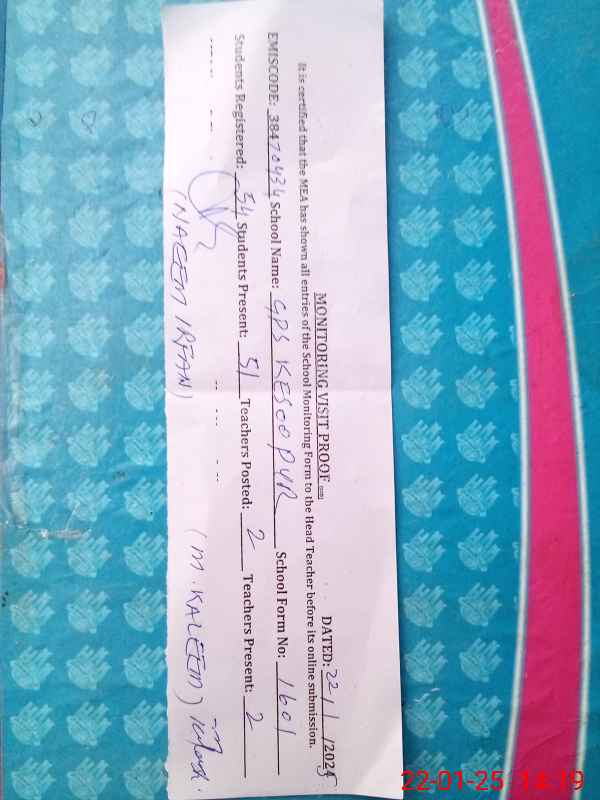 MONITORING VISIT PROOF
DATED: 22/1/2025
It is certified that the MEA has shown all entries of the School Monitoring Form to the Head Teacher before its online submission.
EMISCODE: 38470434 School Name: GPS KESOO PUR School Form No: 1601
Students Registered: 54 Students Present: 51 Teachers Posted: 2 Teachers Present: 2
(NAEEM IRFAN) (M. KALEEM)
22-01-25 14:19